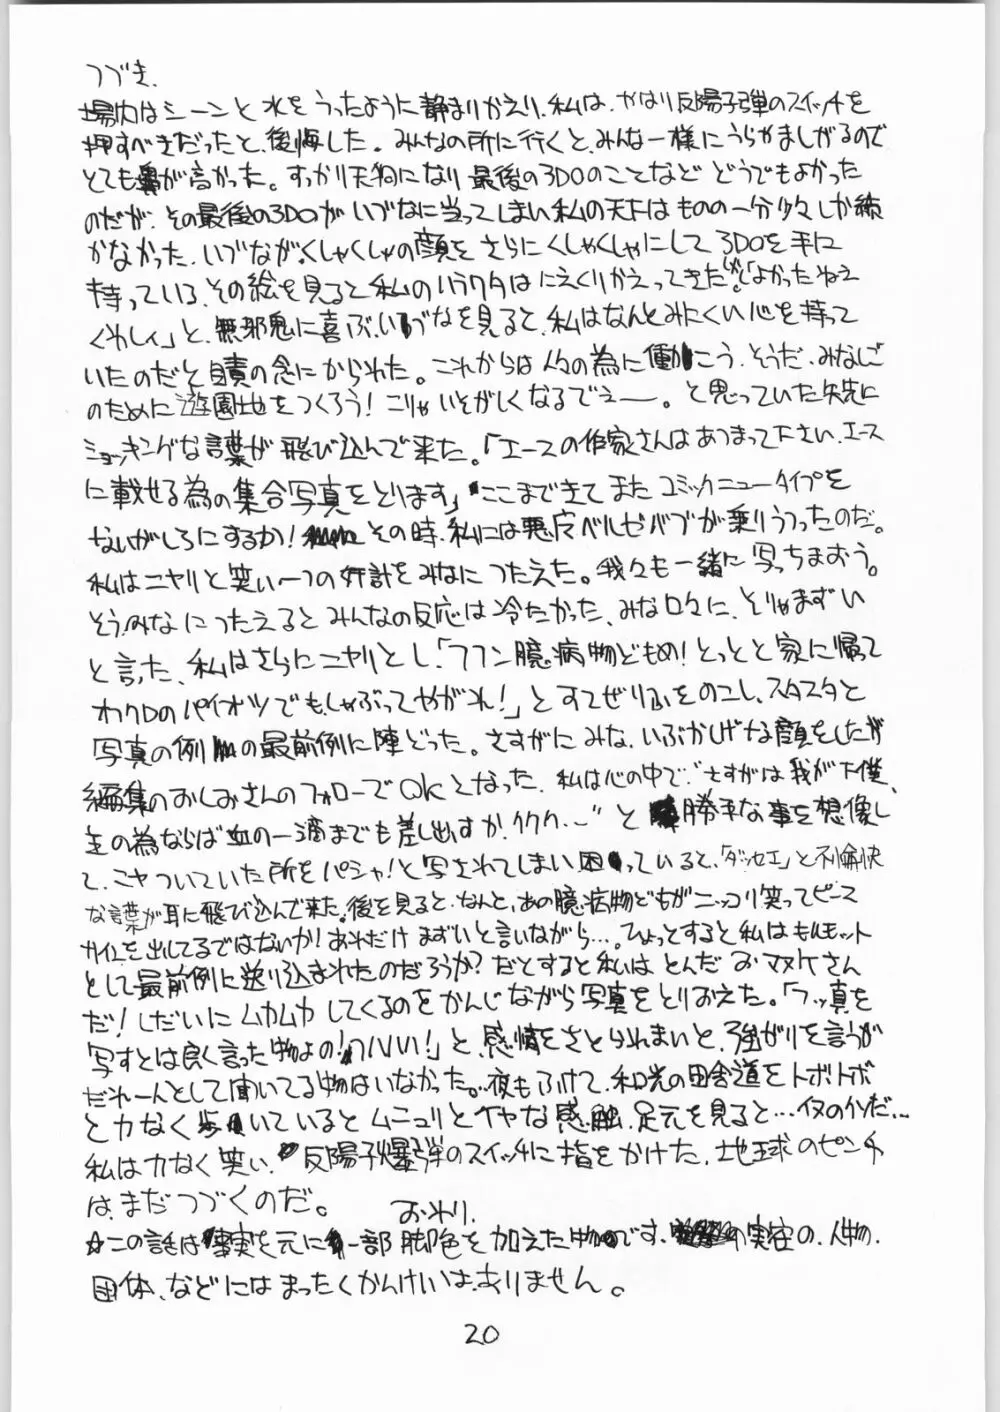 つづき.
場内はシーンと水をうったように静まりかえり、私は、やはり反陽子弾のスイッチを
押すべきだったと、後悔した。みんなの所に行くと、みんな一様にうらやましがるので
とても鼻が高かった。すっかり天狗になり最後の3DOのことなどどうでもよかった
のだが、その最後の3DOがいづなに当ってしまい私の天下はものの一分少々しか続
かなかった。いづながくしゃくしゃの顔をさらにくしゃくしゃにして3DOを手に
持っている、その絵を見ると私のハラワタはにえくりかえってきたが「よかったねえ
くわしィ」と、無邪鬼に喜ぶ、いづなを見ると、私はなんとみにくい心を持って
いたのだと自責の念にかられた。これからは人々の為に働こう。そうだ、みなしご
のために遊園地をつくろう!こりゃいそがしくなるでェー。と思っていた矢先に
ショッキングな言葉が飛び込んで来た。「エースの作家さんはあつまって下さい、エース
に載せる為の集合写真をとります」ここまできてまたコミックニュータイプを
ないがしろにするか!その時、私には悪魔ベルゼバブが乗りうつったのだ。
私はニヤリと笑い一つの奸計をみなにつたえた。我々も一緒に写っちまおう。
そう、みなにつたえるとみんなの反応は冷たかった、みな口々に、そりゃまずい
と言った、私はさらにニヤリとし、「フフン臆病物どもめ!とっとと家に帰って
オフクロのパイオツでも、しゃぶってやがれ!」とすてぜりふをのこし、スタスタと
写真の例の最前例に陣どった。さすがにみな、いぶかしげな顔をしたが
編集のおしみさんのフォローでOKとなった、私は心の中で、"さすがは我が下僕、
主の為ならば血の一滴までも差し出すか、ククク…"と勝手な事を想像し
て、ニヤついていた所をパシャ!と写されてしまい困っていると、「ダッセエ」と不愉快
な言葉が耳に飛び込んで来た。後を見ると、なんと、あの臆病物どもがニッコリ笑ってピース
サインを出してるではないか!あれだけまずいと言いながら…。ひょっとすると私はモルモット
として最前例に送り込まれたのだろうか?だとすると私はとんだおマヌケさん
だ!しだいにムカムカしてくるのをかんじながら写真をとりおえた。「フッ真を
写すとは良く言った物よの!フハハ!」と、感情をさとられまいと、強がりを言うが
だれ一人として聞いてる物はいなかった。夜もふけて、和光の田舎道をトボトボ
と力なく歩いているとムニュリとイヤな感触、足元を見ると…イヌのフンだ…
私は力なく笑い、反陽子爆弾のスイッチに指をかけた、地球のピンチ
は、まだつづくのだ。
おわり.
☆この話は事実を元に一部脚色を加えた物です、実在の、人物、
団体、などにはまったくかんけいは、ありません。
20